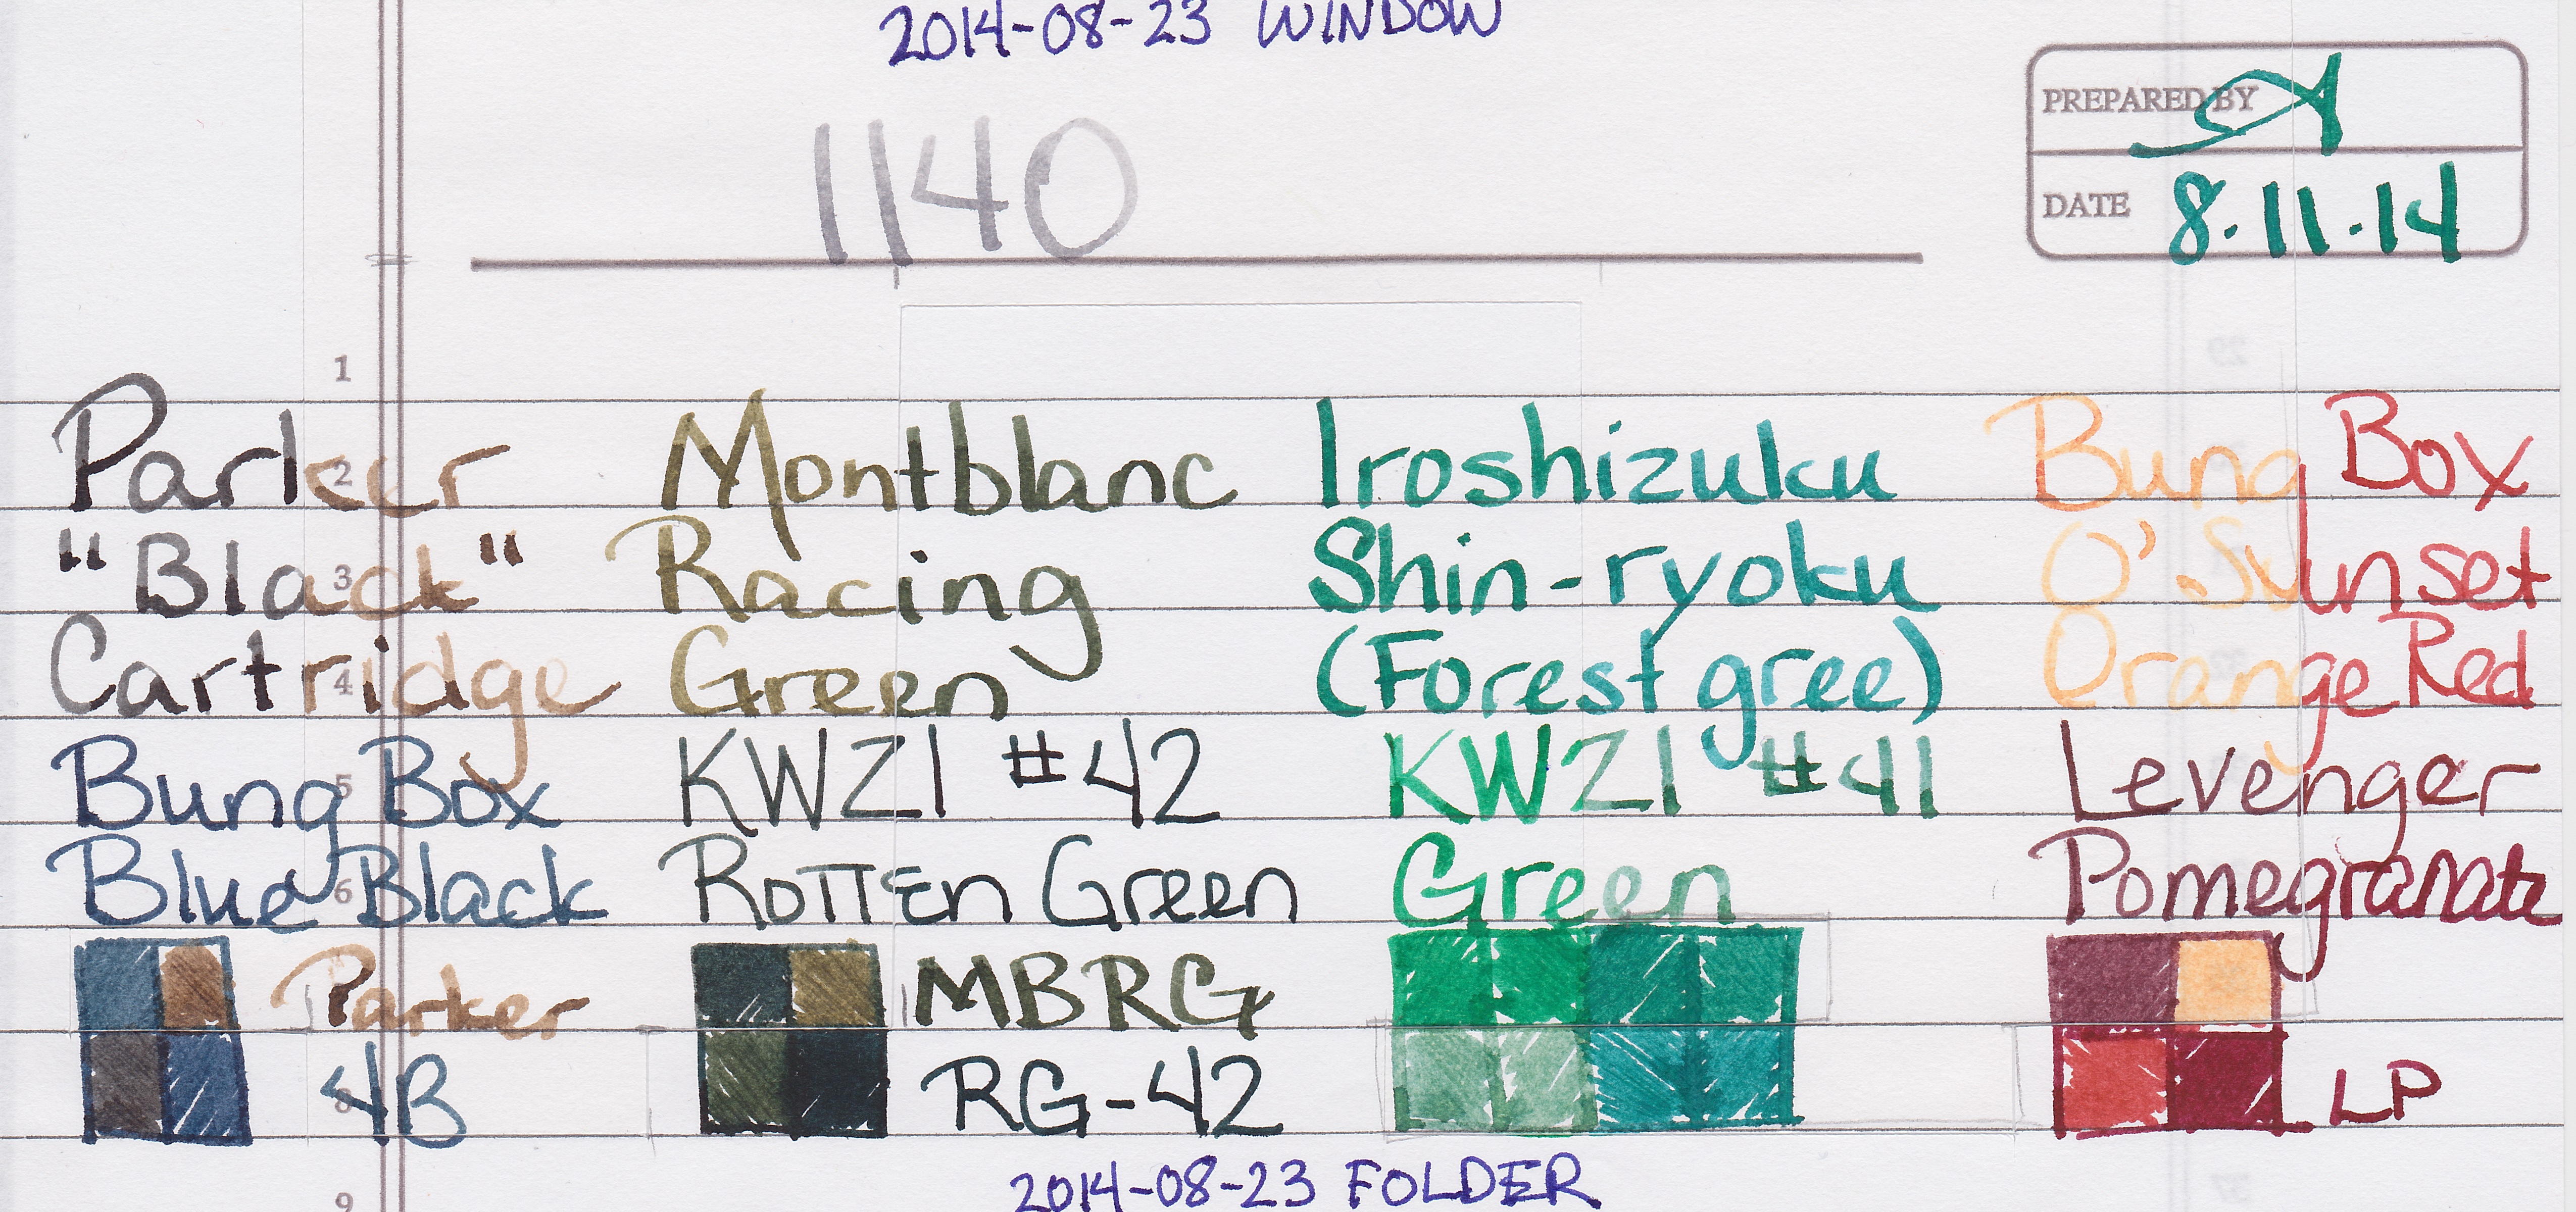 2014-08-23 WINDOW
1140
PREPARED BY
DATE 8.11.14
1
2
3
4
5
6
8
9
29
37
Parker
"Black"
Cartridge
Bung Box
Blue Black
Parker
4B
Montblanc
Racing
Green
KWZI #42
Rotten Green
MBRG
RG-42
Iroshizuku
Shin-ryoku
(Forest gree)
KWZI #41
Green
Bung Box
O'.Sunset
Orange Red
Levenger
Pomegranate
LP
2014-08-23 FOLDER